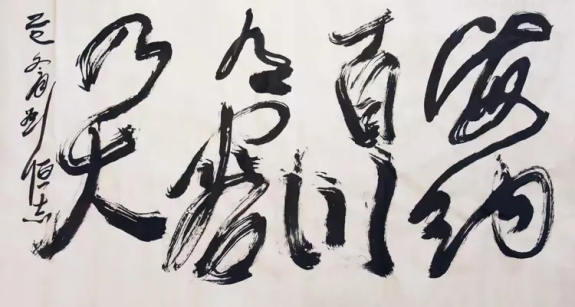 海纳
百川
有容
乃大
冬月刘恒志